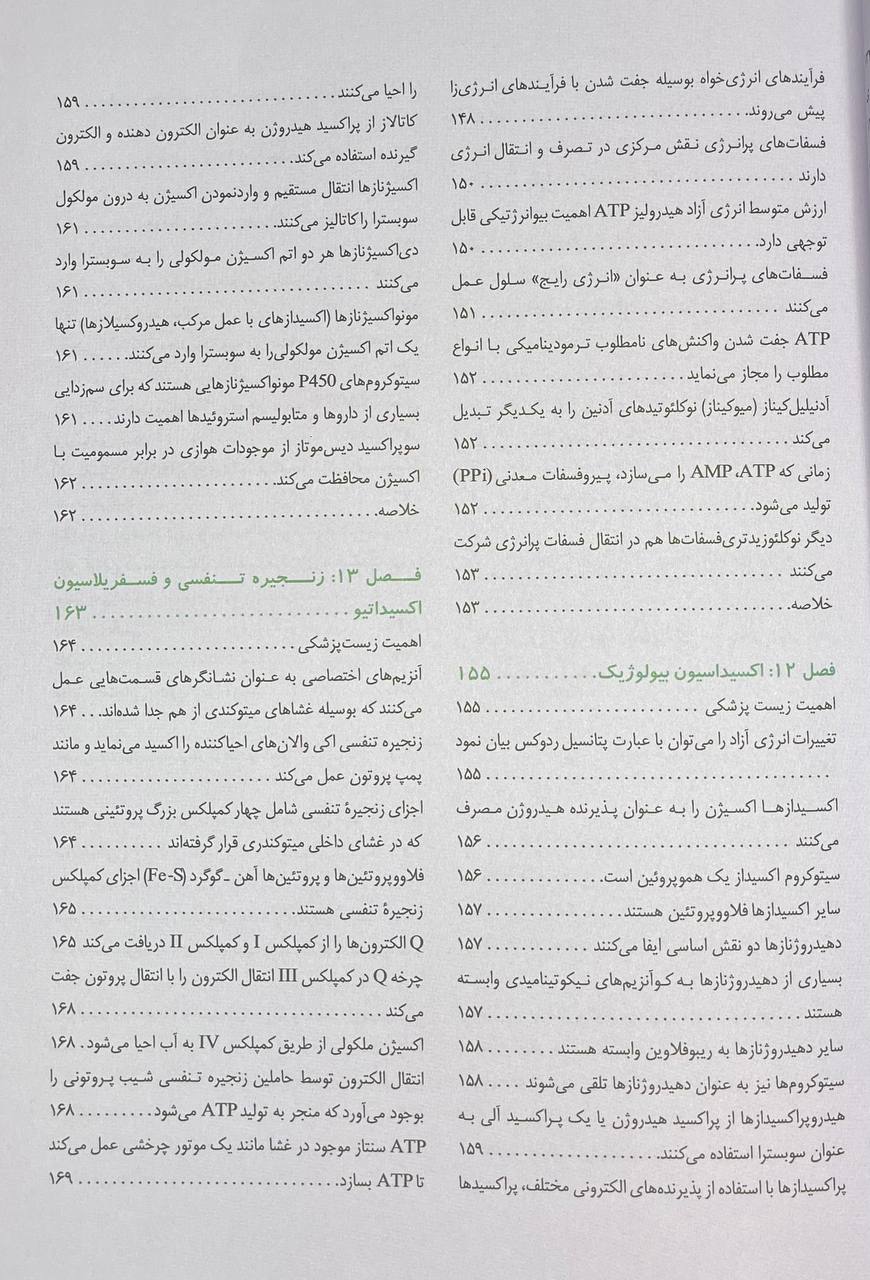 فرآیندهای انرژی‌خواه بوسیله جفت شدن با فرآیندهای انرژی‌زا
پیش می‌روند. ۱۴۸
فسفات‌های پرانرژی نقش مرکزی در تصرف و انتقال انرژی
دارند ۱۵۰
ارزش متوسط انرژی آزاد هیدرولیز ATP اهمیت بیوانرژتیکی قابل
توجهی دارد. ۱۵۰
فسفات‌های پرانرژی به عنوان «انرژی رایج» سلول عمل
می‌کنند ۱۵۱
ATP جفت شدن واکنش‌های نامطلوب ترمودینامیکی با انواع
مطلوب را مجاز می‌نماید ۱۵۲
آدنیلیل‌کیناز (میوکیناز) نوکلئوتیدهای آدنین را به یکدیگر تبدیل
می‌کند ۱۵۲
زمانی که AMP ،ATP را می‌سازد، پیروفسفات معدنی (PPi)
تولید می‌شود. ۱۵۲
دیگر نوکلئوزیدتری‌فسفات‌ها هم در انتقال فسفات پرانرژی شرکت
می‌کنند ۱۵۳
خلاصه. ۱۵۳
فصل ۱۲: اکسیداسیون بیولوژیک. ۱۵۵
اهمیت زیست پزشکی ۱۵۵
تغییرات انرژی آزاد را می‌توان با عبارت پتانسیل ردوکس بیان نمود
۱۵۵
اکسیدازها اکسیژن را به عنوان پذیرنده هیدروژن مصرف
می‌کنند ۱۵۶
سیتوکروم اکسیداز یک هموپروئین است. ۱۵۶
سایر اکسیدازها فلاووپروتئین هستند ۱۵۷
دهیدروژنازها دو نقش اساسی ایفا می‌کنند ۱۵۷
بسیاری از دهیدروژنازها به کوآنزیم‌های نیکوتینامیدی وابسته
هستند ۱۵۷
سایر دهیدروژنازها به ریبوفلاوین وابسته هستند ۱۵۸
سیتوکروم‌ها نیز به عنوان دهیدروژنازها تلقی می‌شوند ۱۵۸
هیدروپراکسیدازها از پراکسید هیدروژن یا یک پراکسید آلی به
عنوان سوبسترا استفاده می‌کنند. ۱۵۹
پراکسیدازها با استفاده از پذیرنده‌های الکترونی مختلف، پراکسیدها
را احیا می‌کنند ۱۵۹
کاتالاز از پراکسید هیدروژن به عنوان الکترون دهنده و الکترون
گیرنده استفاده می‌کند. ۱۵۹
اکسیژنازها انتقال مستقیم و واردنمودن اکسیژن به درون مولکول
سوبسترا را کاتالیز می‌کنند. ۱۶۱
دی‌اکسیژنازها هر دو اتم اکسیژن مولکولی را به سوبسترا وارد
می‌کنند ۱۶۱
مونواکسیژنازها (اکسیدازهای با عمل مرکب، هیدروکسیلازها) تنها
یک اتم اکسیژن مولکولی‌را به سوبسترا وارد می‌کنند. ۱۶۱
سیتوکروم‌های P450 مونواکسیژنازهایی هستند که برای سم‌زدایی
بسیاری از داروها و متابولیسم استروئیدها اهمیت دارند ۱۶۱
سوپراکسید دیس‌موتاز از موجودات هوازی در برابر مسمومیت با
اکسیژن محافظت می‌کند. ۱۶۲
خلاصه. ۱۶۲
فصل ۱۳: زنجیره تنفسی و فسفریلاسیون
اکسیداتیو ۱۶۳
اهمیت زیست‌پزشکی ۱۶۴
آنزیم‌های اختصاصی به عنوان نشانگرهای قسمت‌هایی عمل
می‌کنند که بوسیله غشاهای میتوکندی از هم جدا شده‌اند. ۱۶۴
زنجیره تنفسی اکی والان‌های احیاکننده را اکسید می‌نماید و مانند
پمپ پروتون عمل می‌کند ۱۶۴
اجزای زنجیرهٔ تنفسی شامل چهار کمپلکس بزرگ پروتئینی هستند
که در غشای داخلی میتوکندری قرار گرفته‌اند ۱۶۴
فلاووپروتئین‌ها و پروتئین‌ها آهن ـ گوگرد (Fe-S) اجزای کمپلکس
زنجیرهٔ تنفسی هستند. ۱۶۵
Q الکترون‌ها را از کمپلکس I و کمپلکس II دریافت می‌کند ۱۶۵
چرخه Q در کمپلکس III انتقال الکترون را با انتقال پروتون جفت
می‌کند ۱۶۸
اکسیژن ملکولی از طریق کمپلکس IV به آب احیا می‌شود. ۱۶۸
انتقال الکترون توسط حاملین زنجیره تنفسی شیب پروتونی را
بوجود می‌آورد که منجر به تولید ATP می‌شود. ۱۶۸
ATP سنتاز موجود در غشا مانند یک موتور چرخشی عمل می‌کند
تا ATP بسازد. ۱۶۹